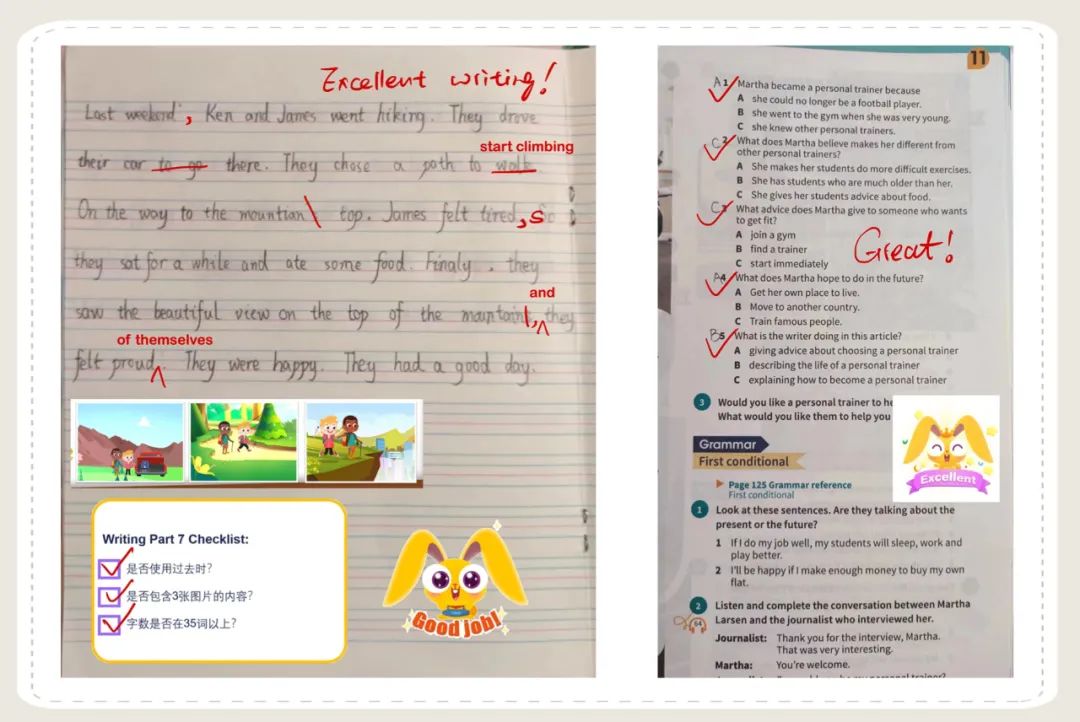 Excellent writing!
Last weekend, Ken and James went hiking. They drove
start climbing
their car to go there. They chose a path to walk.
On the way to the mountian top. James felt tired, so
they sat for a while and ate some food. Finaly, they
and
saw the beautiful view on the top of the mountain, they
of themselves
felt proud. They were happy. They had a good day.
Writing Part 7 Checklist:
是否使用过去时?
是否包含3张图片的内容?
字数是否在35词以上?
Good job!
11
A 1 Martha became a personal trainer because
A she could no longer be a football player.
B she went to the gym when she was very young.
C she knew other personal trainers.
C 2 What does Martha believe makes her different from
other personal trainers?
A She makes her students do more difficult exercises.
B She has students who are much older than her.
C She gives her students advice about food.
C 3 What advice does Martha give to someone who wants
to get fit?
A join a gym
B find a trainer
C start immediately
Great!
A 4 What does Martha hope to do in the future?
A Get her own place to live.
B Move to another country.
C Train famous people.
B 5 What is the writer doing in this article?
A giving advice about choosing a personal trainer
B describing the life of a personal trainer
C explaining how to become a personal trainer
3 Would you like a personal trainer to
What would you like them to help you
Excellent
Grammar
First conditional
Page 125 Grammar reference
First conditional
1 Look at these sentences. Are they talking about the
present or the future?
1 If I do my job well, my students will sleep, work and
play better.
2 I'll be happy if I make enough money to buy my own
flat.
2 Listen and complete the conversation between Martha
Larsen and the journalist who interviewed her.
64
Journalist: Thank you for the interview, Martha.
That was very interesting.
Martha: You're welcome.